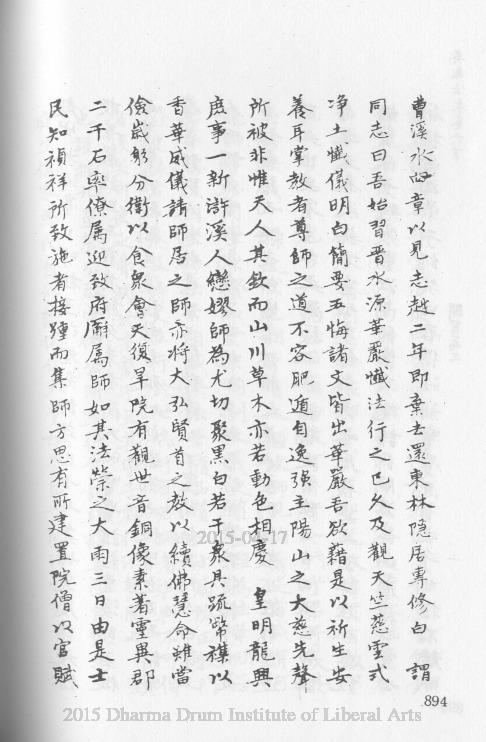 曹溪水四章以見志越二年即棄去還東林隱居專修白 謂
同志曰吾始習晉水源華嚴懺法行之已久及觀天竺慈雲式
净土懺儀明白簡要五悔諸文皆出華嚴吾欲藉是以祈生安
養耳掌教者尊師之道不容肥遁自逸强主陽山之大慈先聲
所被非惟天人其欽而山川草木亦若動色相慶 皇明龍興
庶事一新滸溪人戀嫪師為尤切聚黑白若干眾具疏幣襪以
香華威儀請師居之師亦將大弘賢首之教以續佛慧命雖當
儉歲躬分衛以食眾會天復旱院有觀世音銅像素著靈異郡
二千石率僚属迎致府廨属師如其法禜之大雨三日由是士
民知禎祥所致施者接踵而集師方思有所建置院僧以官賦
894
2015-04-17
2015 Dharma Drum Institute of Liberal Arts